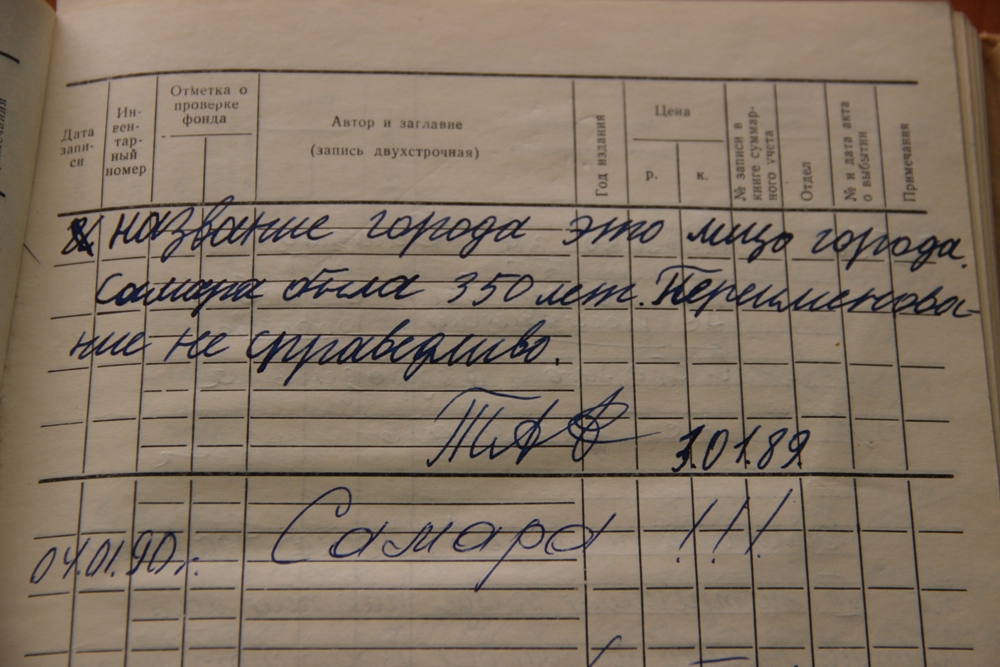 Дата записи
Инвентарный номер
Отметка о проверке фонда
Автор и заглавие
(запись двухстрочная)
Год издания
Цена
р.
к.
№ записи в книге суммарного учета
Отдел
№ и дата акта о выбытии
Примечания
название города это лицо города.
Самара была 350 лет. Переименова-
ние не справедливо.
3.01.89.
04.01.90г.
Самара !!!